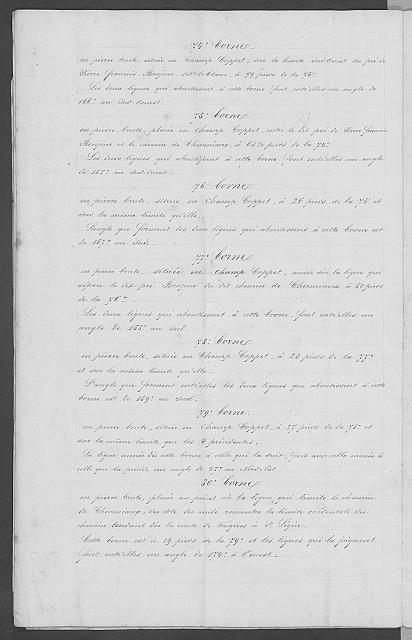 74e Borne.
en pierre brute, située en Champ Coppet, sur la limite sud-ouest du pré de
Pierre François Bonjour, dit le Blanc, à 79 pieds de la 73e
Les deux lignes qui aboutissent à cette borne font entr'elles un angle de
166° au Sud-ouest.
75e Borne
en pierre brute, placée en Champ Coppet, entre le dit pré de Pierre François
Bonjour et le chemin de Chermiaux, à 64½ pieds de la 74e
Les deux lignes qui aboutissent à cette borne font entr'elles un angle
de 167° au sud-ouest.
76e Borne
en pierre brute, située en Champ Coppet, à 26 pieds de la 75e et
sur la même limite qu'elle.
L'angle que forment les deux lignes qui aboutissent à cette borne est
de 167° au Sud.
77e Borne
en pierre brute, située en Champ Coppet, aussi sur la ligne qui
sépare le dit pré Bonjour du dit chemin de Chermiaux à 50 pieds
de la 76e.
Les deux lignes qui aboutissent à cette borne, font entr'elles un
angle de 155° au Sud.
78e Borne
en pierre brute, située en Champ Coppet, à 23 pieds de la 77e
et sur la même limite qu'elle.
L'angle que forment entr'elles les deux lignes qui aboutissent à cette
borne est de 159° au Sud.
79e Borne.
en pierre brute, située en Champ Coppet, à 27 pieds de la 78e et
sur la même limite que les 4 précédentes.
La ligne menée dès cette borne à celle qui la suit, fait avec celle menée à
celle qui la précède un angle de 47° au Nord-Est
80e Borne
en pierre brute, placée au point où la ligne qui limite le chemin
de Chermiaux, du côté du midi rencontre la limite occidentale du
chemin tendant dès la route de à St Légier.
Cette borne est à 19 pieds de la 79e et les lignes qui la joignent
font entr'elles un angle de 174° à l'ouest.